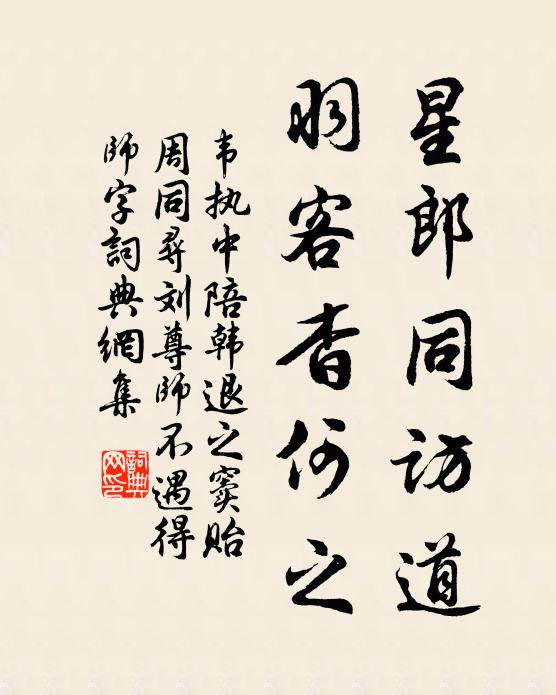 星郎同访道
羽客杳何之
韦执中陪韩退之窦贻
周同寻刘尊师不遇得
师字詞典網集
詞典
网印